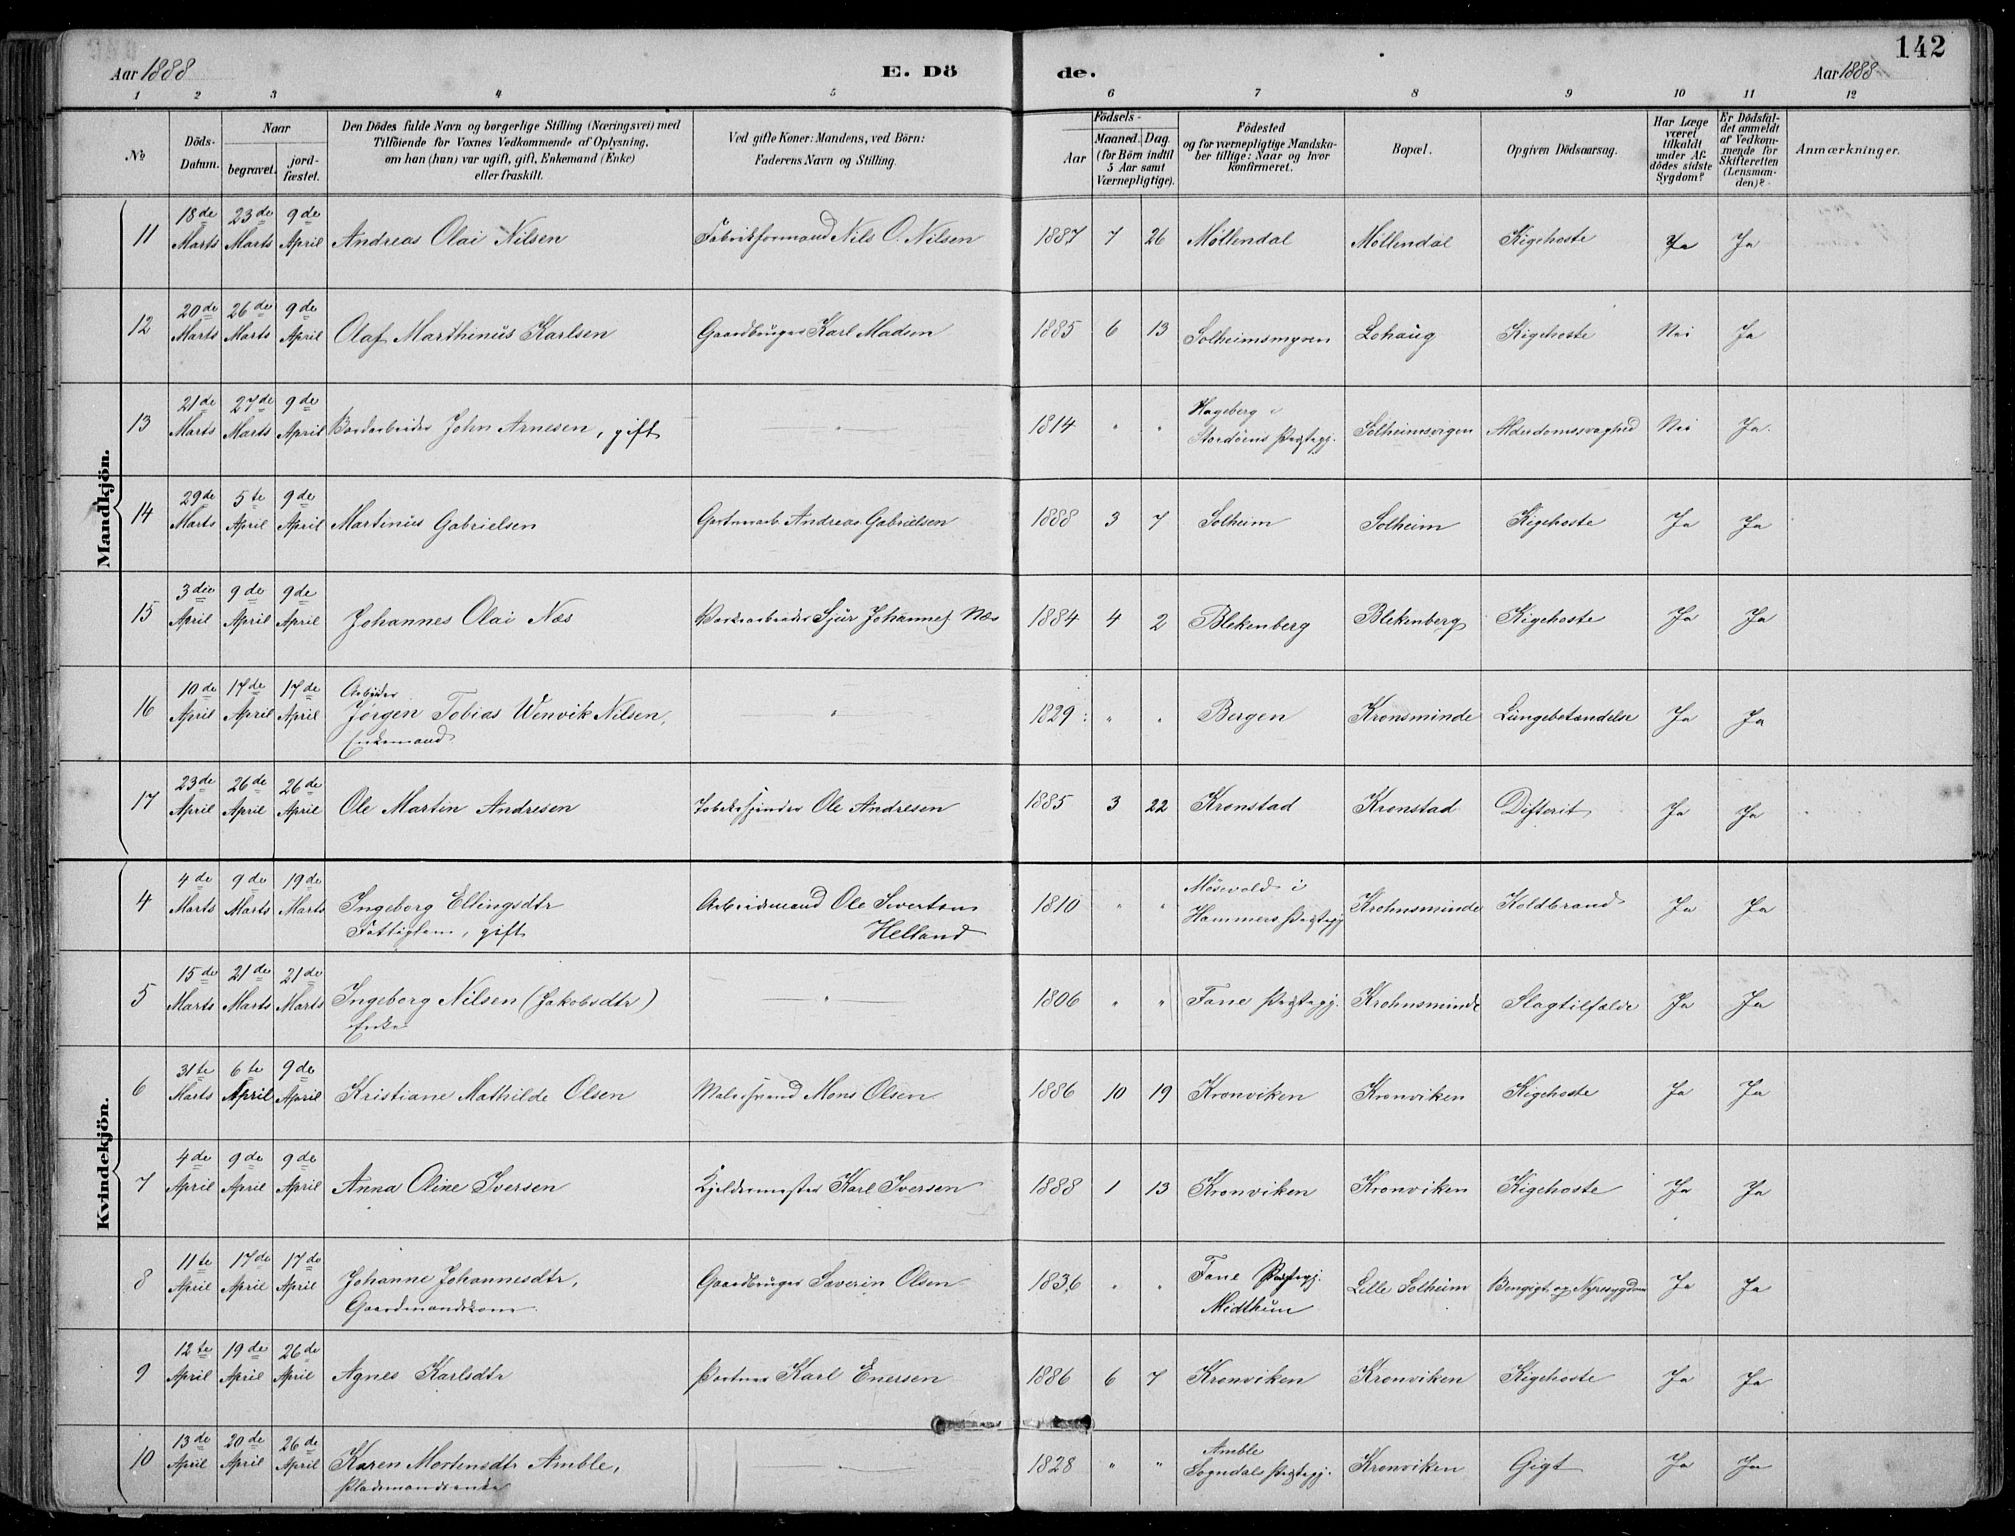 142
Aar 1888 E. Dö de. Aar 1888
1 2 3 4 5 6 7 8 9 10 11 12
No
Döds-Datum.
Naar
begravet. jordfæstet.
Den Dödes fulde Navn og borgerlige Stilling (Næringsvei) med
Tilföiende for Voxnes Vedkommende af Oplysning,
om han (hun) var ugift, gift, Enkemand (Enke)
eller fraskilt.
Ved gifte Koner: Mandens, ved Börn:
Faderens Navn og Stilling.
Födsels-
Aar Maaned. Dag.
(for Börn indtil
5 Aar samt
Værnepligtige).
Födested
og for værnepligtige Mandskaber tillige: Naar og hvor
konfirmeret.
Bopæl.
Opgiven Dödsaarsag.
Har Læge
været
tilkaldt
under Afdödes sidste
Sygdom?
Er Dödsfaldet anmeldt
af Vedkommende for
Skifteretten
(Lensmanden)?
Anmærkninger.
Mandkjön.
11 18de Marts 23de Marts 9de April Andreas Olai Nilsen Fabrikformand Nils O. Nilsen 1887 7 26 Møllendal Møllendal Kigehoste Ja Ja
12 20de Marts 26de Marts 9de April Olaf Marthinus Karlsen Gaardbruger Karl Madsen 1885 6 13 Solheimsmyren Lohaug Kigehoste Nei Ja
13 21de Marts 27de Marts 9de April John Arnesen, gift " 1814 " " Hageberg i Stordöens Præstegj. Solheimsvigen Alderdomssvaghed Nei Ja
14 29de Marts 5te April 9de April Martinus Gabrielsen Andreas Gabrielsen 1888 3 7 Solheim Solheim Kigehoste Ja Ja
15 3die April 9de April 9de April Johannes Olai Næs Sjur Johannes Næs 1884 4 2 Blekenberg Blekenberg Kigehoste Ja Ja
16 10de April 17de April 17de April Arbeider Jørgen Tobias Wenvik Nilsen, Enkemand " 1829 " " Bergen Kronsminde Lungebetændelse Ja Ja
17 23de April 26de April 26de April Ole Martin Andresen Tobaksspinder Ole Andresen 1885 3 22 Kronstad Kronstad Difterit Ja Ja
Kvindekjön.
4 4de Marts 9de Marts 19de Marts Ingeborg Ellingsdtr Fattiglem, gift Arbeidsmand Ole Sivertsen Helland 1810 " " Møsevold i Hammers Præstegj. Krohnsminde Koldbrand Ja Ja
5 15de Marts 21de Marts 21de Marts Ingeborg Nilsen (Jakobsdtr) Enke " 1806 " " Fane Præstegj. Krohnsminde Slagtilfælde Ja Ja
6 31te Marts 6te April 9de April Kristiane Mathilde Olsen Malersvend Mons Olsen 1886 10 19 Kronviken Kronviken Kigehoste Ja Ja
7 4de April 9de April 9de April Anna Oline Iversen Kjeldermester Karl Iversen 1888 1 13 Kronviken Kronviken Kigehoste Ja Ja
8 11te April 17de April 17de April Johanne Johannesdtr, Gaardmandskone Gaardbruger Severin Olsen 1836 " " Fane Præstegj. Midthun Lille Solheim Bengigt og Nyresygdom Ja Ja
9 12te April 19de April 26de April Agnes Karlsdtr Portner Karl Enersen 1886 6 7 Kronviken Kronviken Kigehoste Ja Ja
10 13de April 20de April 26de April Karen Mortensdtr Amble, Pladsmandsenke 1828 " " Amble Sogndals Præstegj. Kronviken Gigt Ja Ja